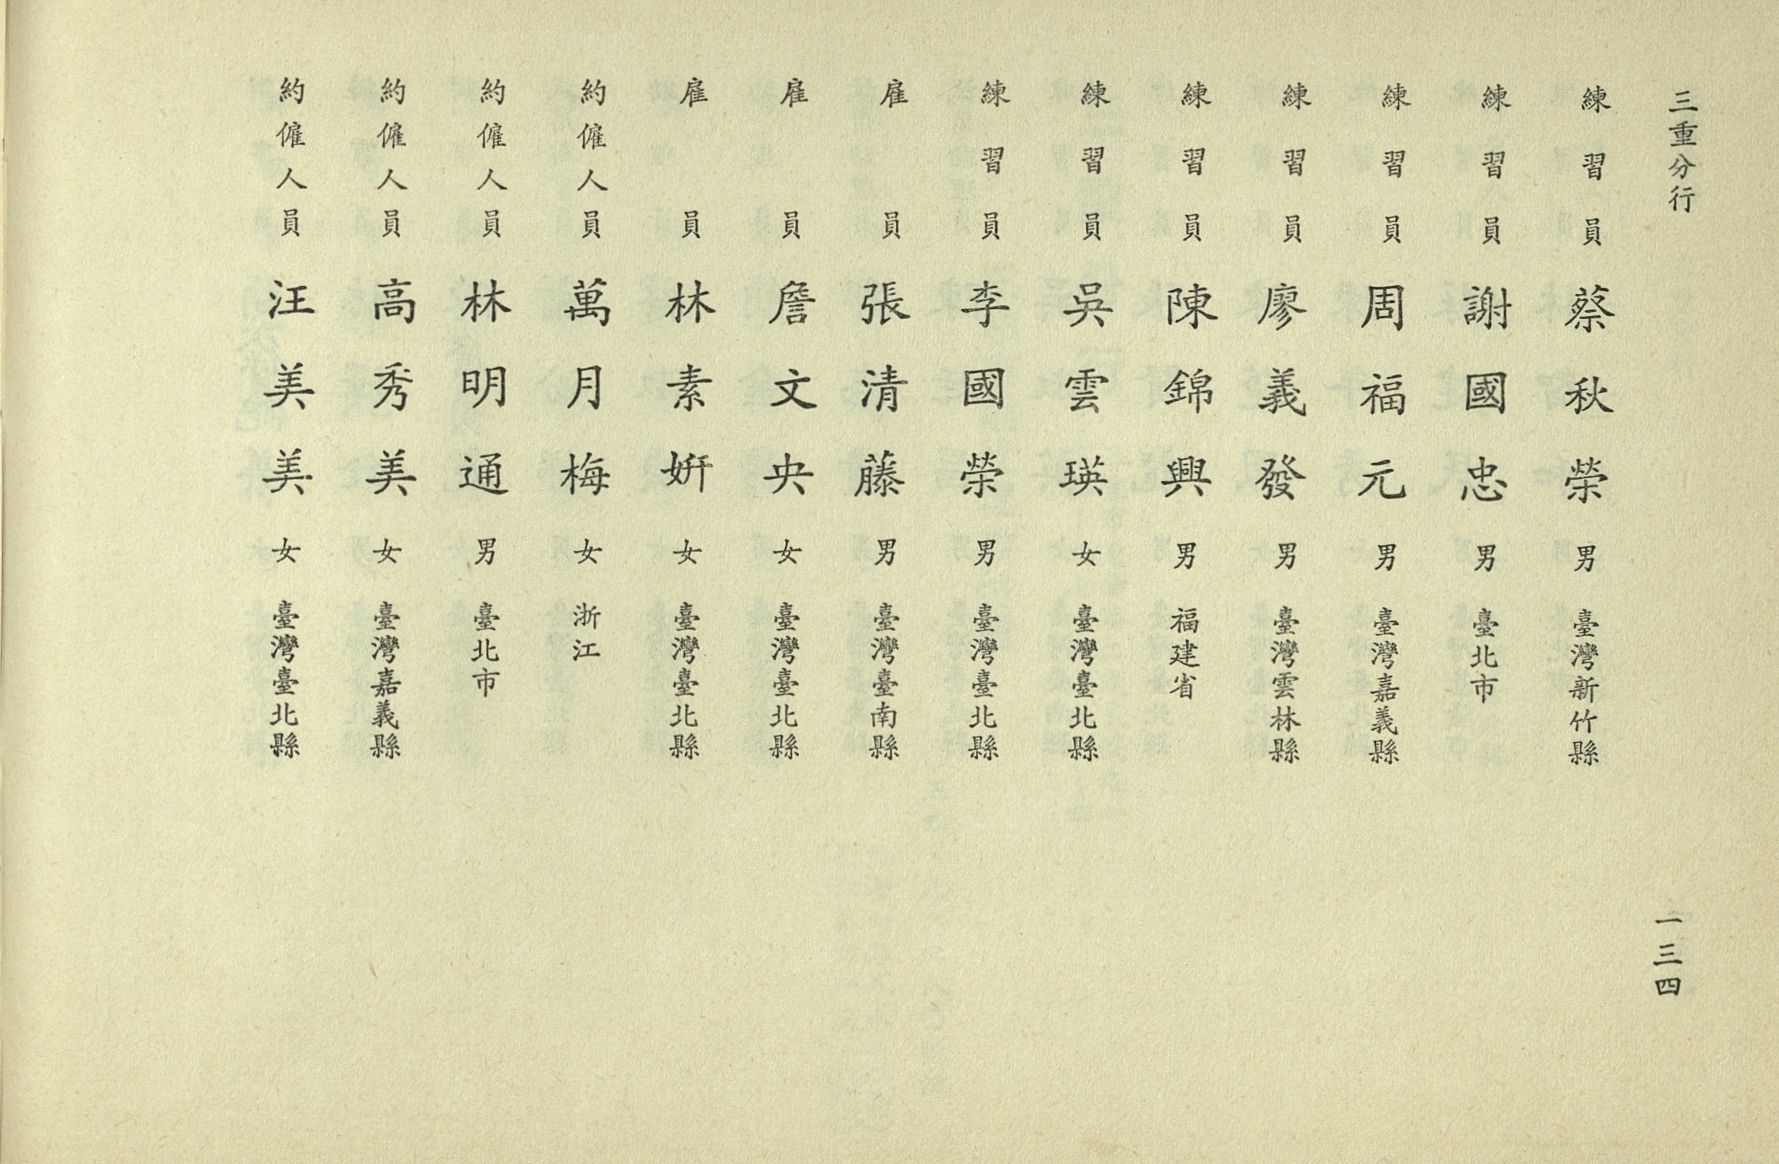 三重分行
一三四
練習員 蔡秋榮 男 臺灣新竹縣
練習員 謝國忠 男 臺北市
練習員 周福元 男 臺灣嘉義縣
練習員 廖義發 男 臺灣雲林縣
練習員 陳錦興 男 福建省
練習員 吳雲瑛 女 臺灣臺北縣
練習員 李國榮 男 臺灣臺北縣
雇員 張清藤 男 臺灣臺南縣
雇員 詹文央 女 臺灣臺北縣
雇員 林素妍 女 臺灣臺北縣
約僱人員 萬月梅 女 浙江
約僱人員 林明通 男 臺北市
約僱人員 高秀美 女 臺灣嘉義縣
約僱人員 汪美美 女 臺灣臺北縣